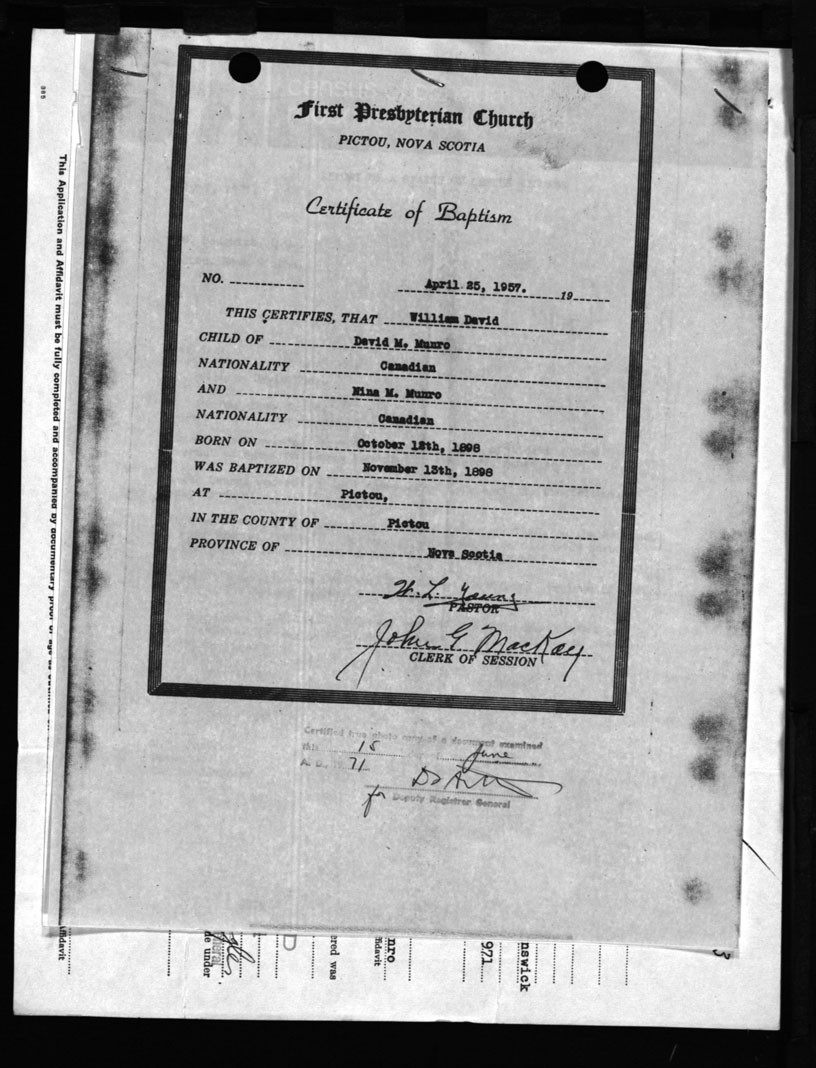 First Presbyterian Church
PICTOU, NOVA SCOTIA
Certificate of Baptism
NO.
April 25, 1957. 19
THIS CERTIFIES, THAT William David
CHILD OF David M. Munro
NATIONALITY Canadian
AND Nina M. Munro
NATIONALITY Canadian
BORN ON October 12th, 1898
WAS BAPTIZED ON November 15th, 1898
AT Pictou,
IN THE COUNTY OF Pictou
PROVINCE OF Nova Scotia
H. L. Young
PASTOR
John G MacKay
CLERK OF SESSION
Certified true photo copy of a document examined
this 15 June
A. D., 71
for Deputy Registrar General
This Application and Affidavit must be fully completed and accompanied by documentary proof of age as
ffidavit
me under
ered was
nro
ffidavit
971
nswick
3